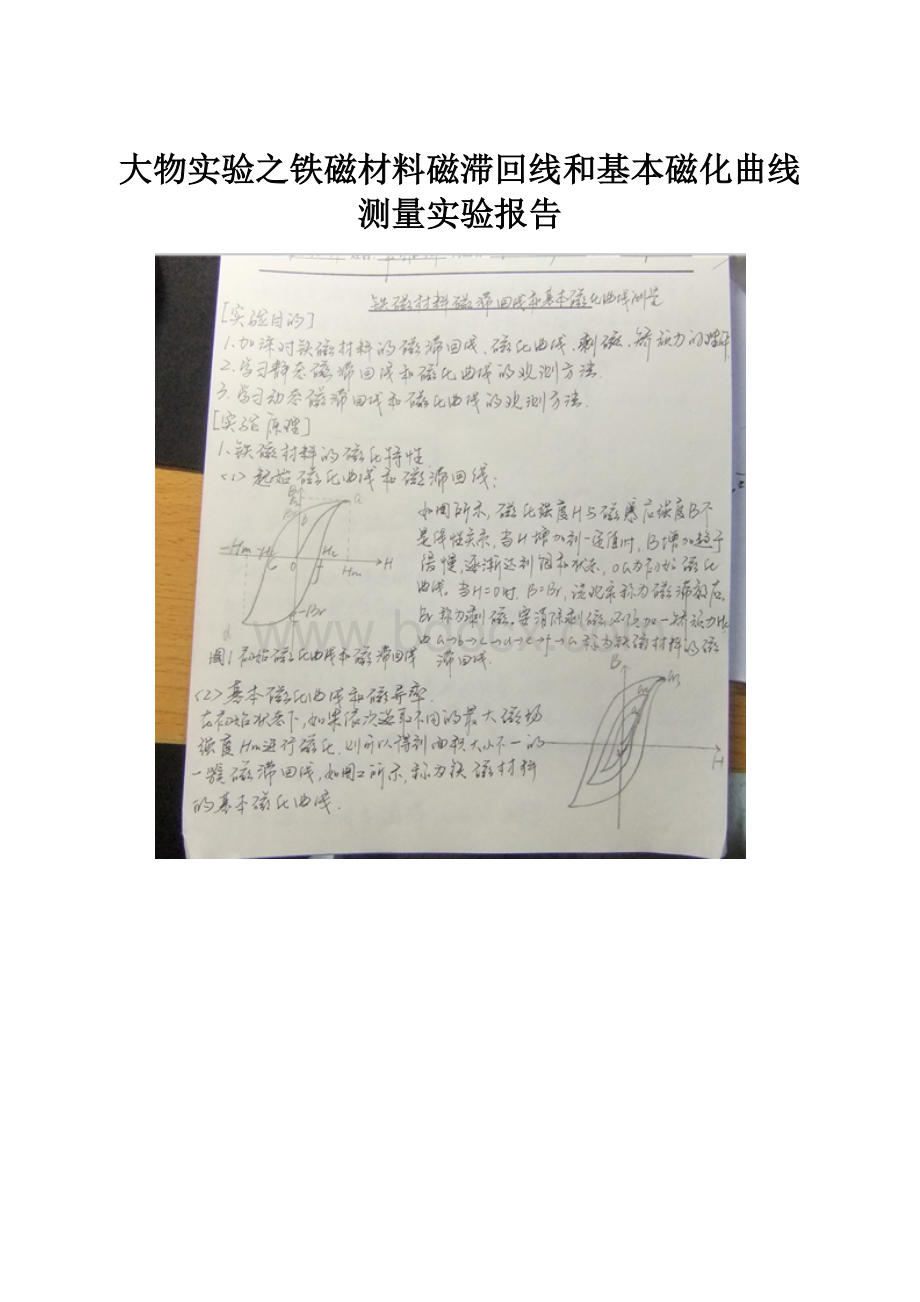 大物实验之铁磁材料磁滞回线和基本磁化曲线
测量实验报告
铁磁材料磁滞回线和基本磁化曲线测量
[实验目的]
1.加深对铁磁材料的磁滞回线、磁化曲线、剩磁、矫顽力的理解
2.学习静态磁滞回线和磁化曲线的观测方法.
3.学习动态磁滞回线和磁化曲线的观测方法.
[实验原理]
1、铁磁材料的磁化特性
<1>起始磁化曲线和磁滞回线:
如图所示,磁化强度H与磁感应强度B不
是线性关系,当H增加到一定值时,B增加趋于
缓慢,逐渐达到饱和状态,oa为初始磁化
曲线。当H=0时.B=Br,该现象称为磁滞效应,
Br称为剩磁。要消除剩磁,必须加一矫顽力Hc
由a→b→c→d→e→f→a称为铁磁材料的磁
滞回线.
a
b
-Hm
-Hc
c
O
Hc
f
Hm
H
-Br
d
图1初始磁化曲线和磁滞回线
<2>基本磁化曲线和磁导率.
在初始状态下,如果依次选取不同的最大磁场
强度Hm进行磁化,则可以得到面积大小不一的
一簇磁滞回线,如图2所示,称为铁磁材料
的基本磁化曲线.
B
H
www.b